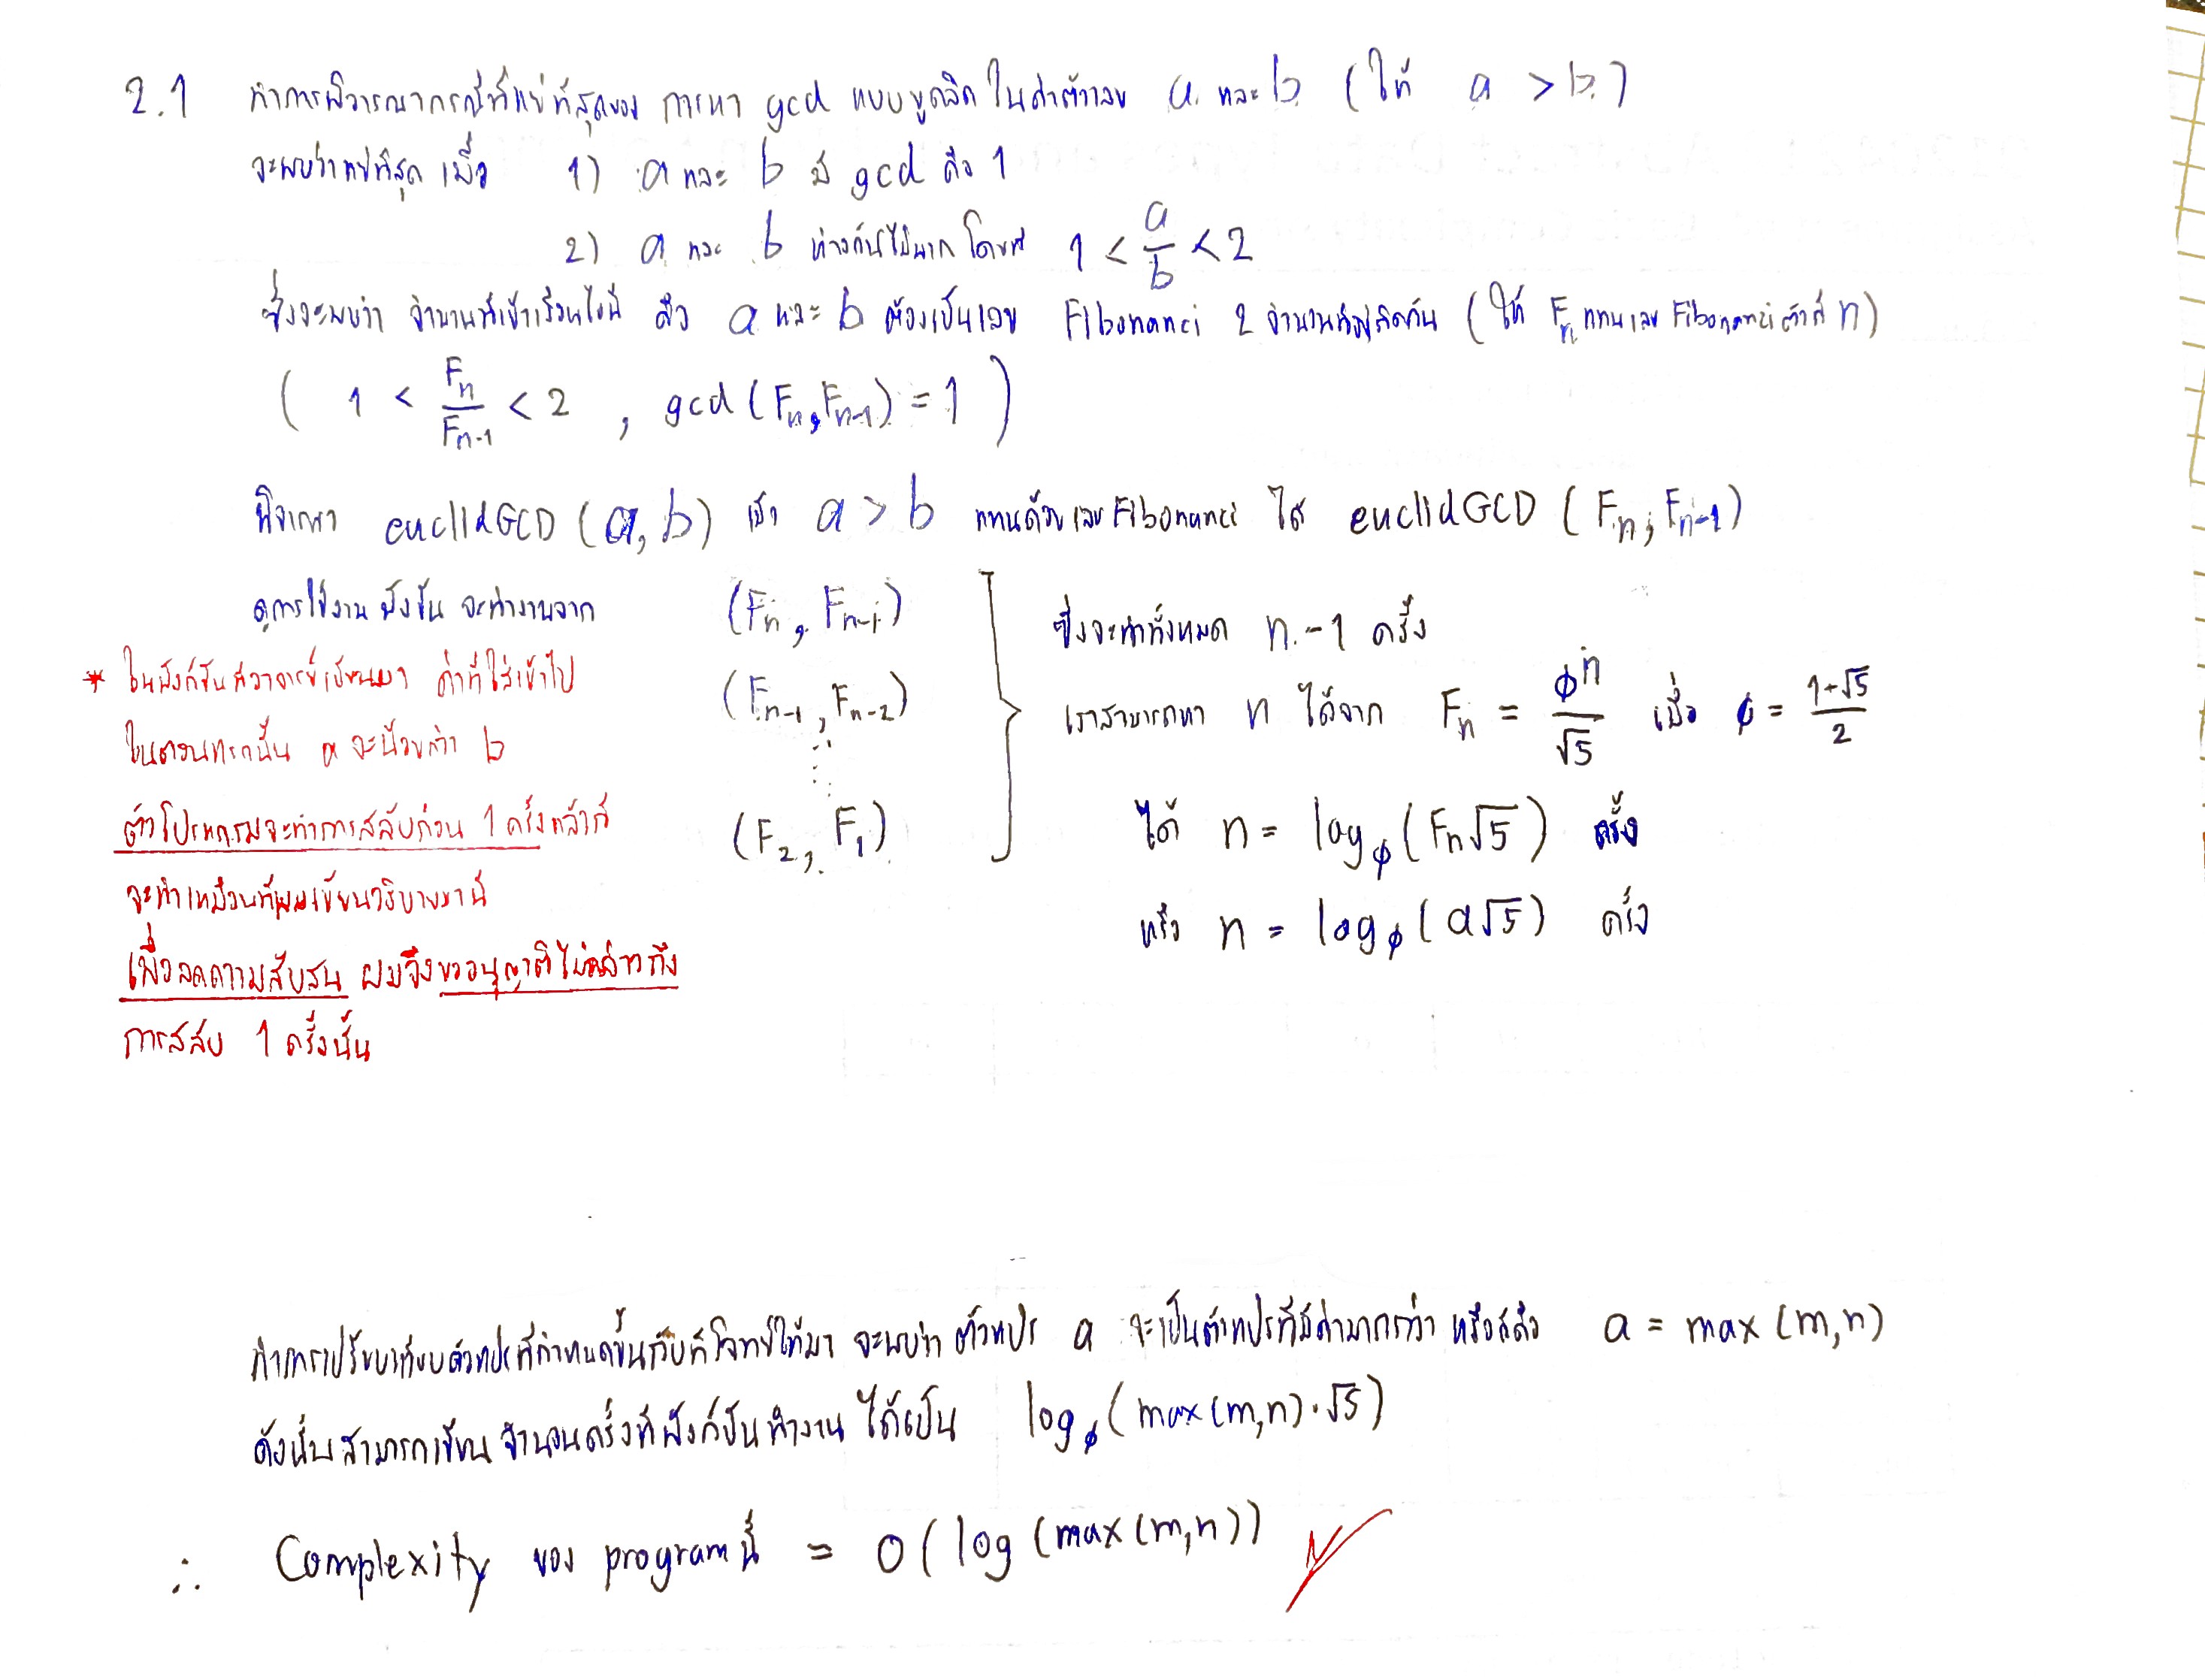 2.1 ทำการพิจารณากรณีที่แย่ที่สุดของ การหา gcd แบบยูคลิด ในค่าตัวเลข a และ b (ให้ a > b)
จะพบว่าแย่ที่สุด เมื่อ 1) a และ b มี gcd คือ 1
2) a และ b ห่างกันไม่มาก โดยที่ 1 < a/b < 2
ซึ่งจะพบว่า จำนวนที่เข้าเงื่อนไขนี้ คือ a และ b ต้องเป็นเลข Fibonanci 2 จำนวนที่อยู่ติดกัน (ให้ Fn แทนเลข Fibonanci ตัวที่ n)
( 1 < Fn/Fn-1 < 2 , gcd(Fn, Fn-1) = 1 )
พิจารณา euclidGCD (a, b) เมื่อ a > b แทนด้วยเลข Fibonanci ได้ euclidGCD (Fn, Fn-1)
ดูการใช้งาน ฟังชัน จะทำงานจาก (Fn, Fn-1)
(Fn-1, Fn-2)
⋮
(F2, F1)
ซึ่งจะทำทั้งหมด n-1 ครั้ง
เราสามารถหา n ได้จาก Fn = φ^n/√5 เมื่อ φ = 1+√5/2
ได้ n = logφ(Fn√5) ครั้ง
หรือ n = logφ(a√5) ครั้ง
* ในฟังก์ชันที่อาจารย์เขียนมา ค่าที่ใส่เข้าไป
ในตอนแรกนั้น a จะน้อยกว่า b
ตัวโปรแกรมจะทำการสลับก่อน 1 ครั้งแล้วก็
จะทำเหมือนที่ผมเขียนอธิบายมานี้
เพื่อลดความสับสน ผมจึงขออนุญาติไม่กล่าวถึง
การสลับ 1 ครั้งนั้น
ทำการเปรียบเทียบตัวแปรที่กำหนดขึ้นกับที่โจทย์ให้มา จะพบว่า ตัวแปร a จะเป็นตัวแปรที่มีค่ามากกว่า หรือก็คือ a = max (m,n)
ดังนั้นสามารถเขียน จำนวนครั้งที่ฟังก์ชันทำงาน ได้เป็น logφ(max(m,n)·√5)
∴ Complexity ของ program นี้ = O(log(max(m,n))